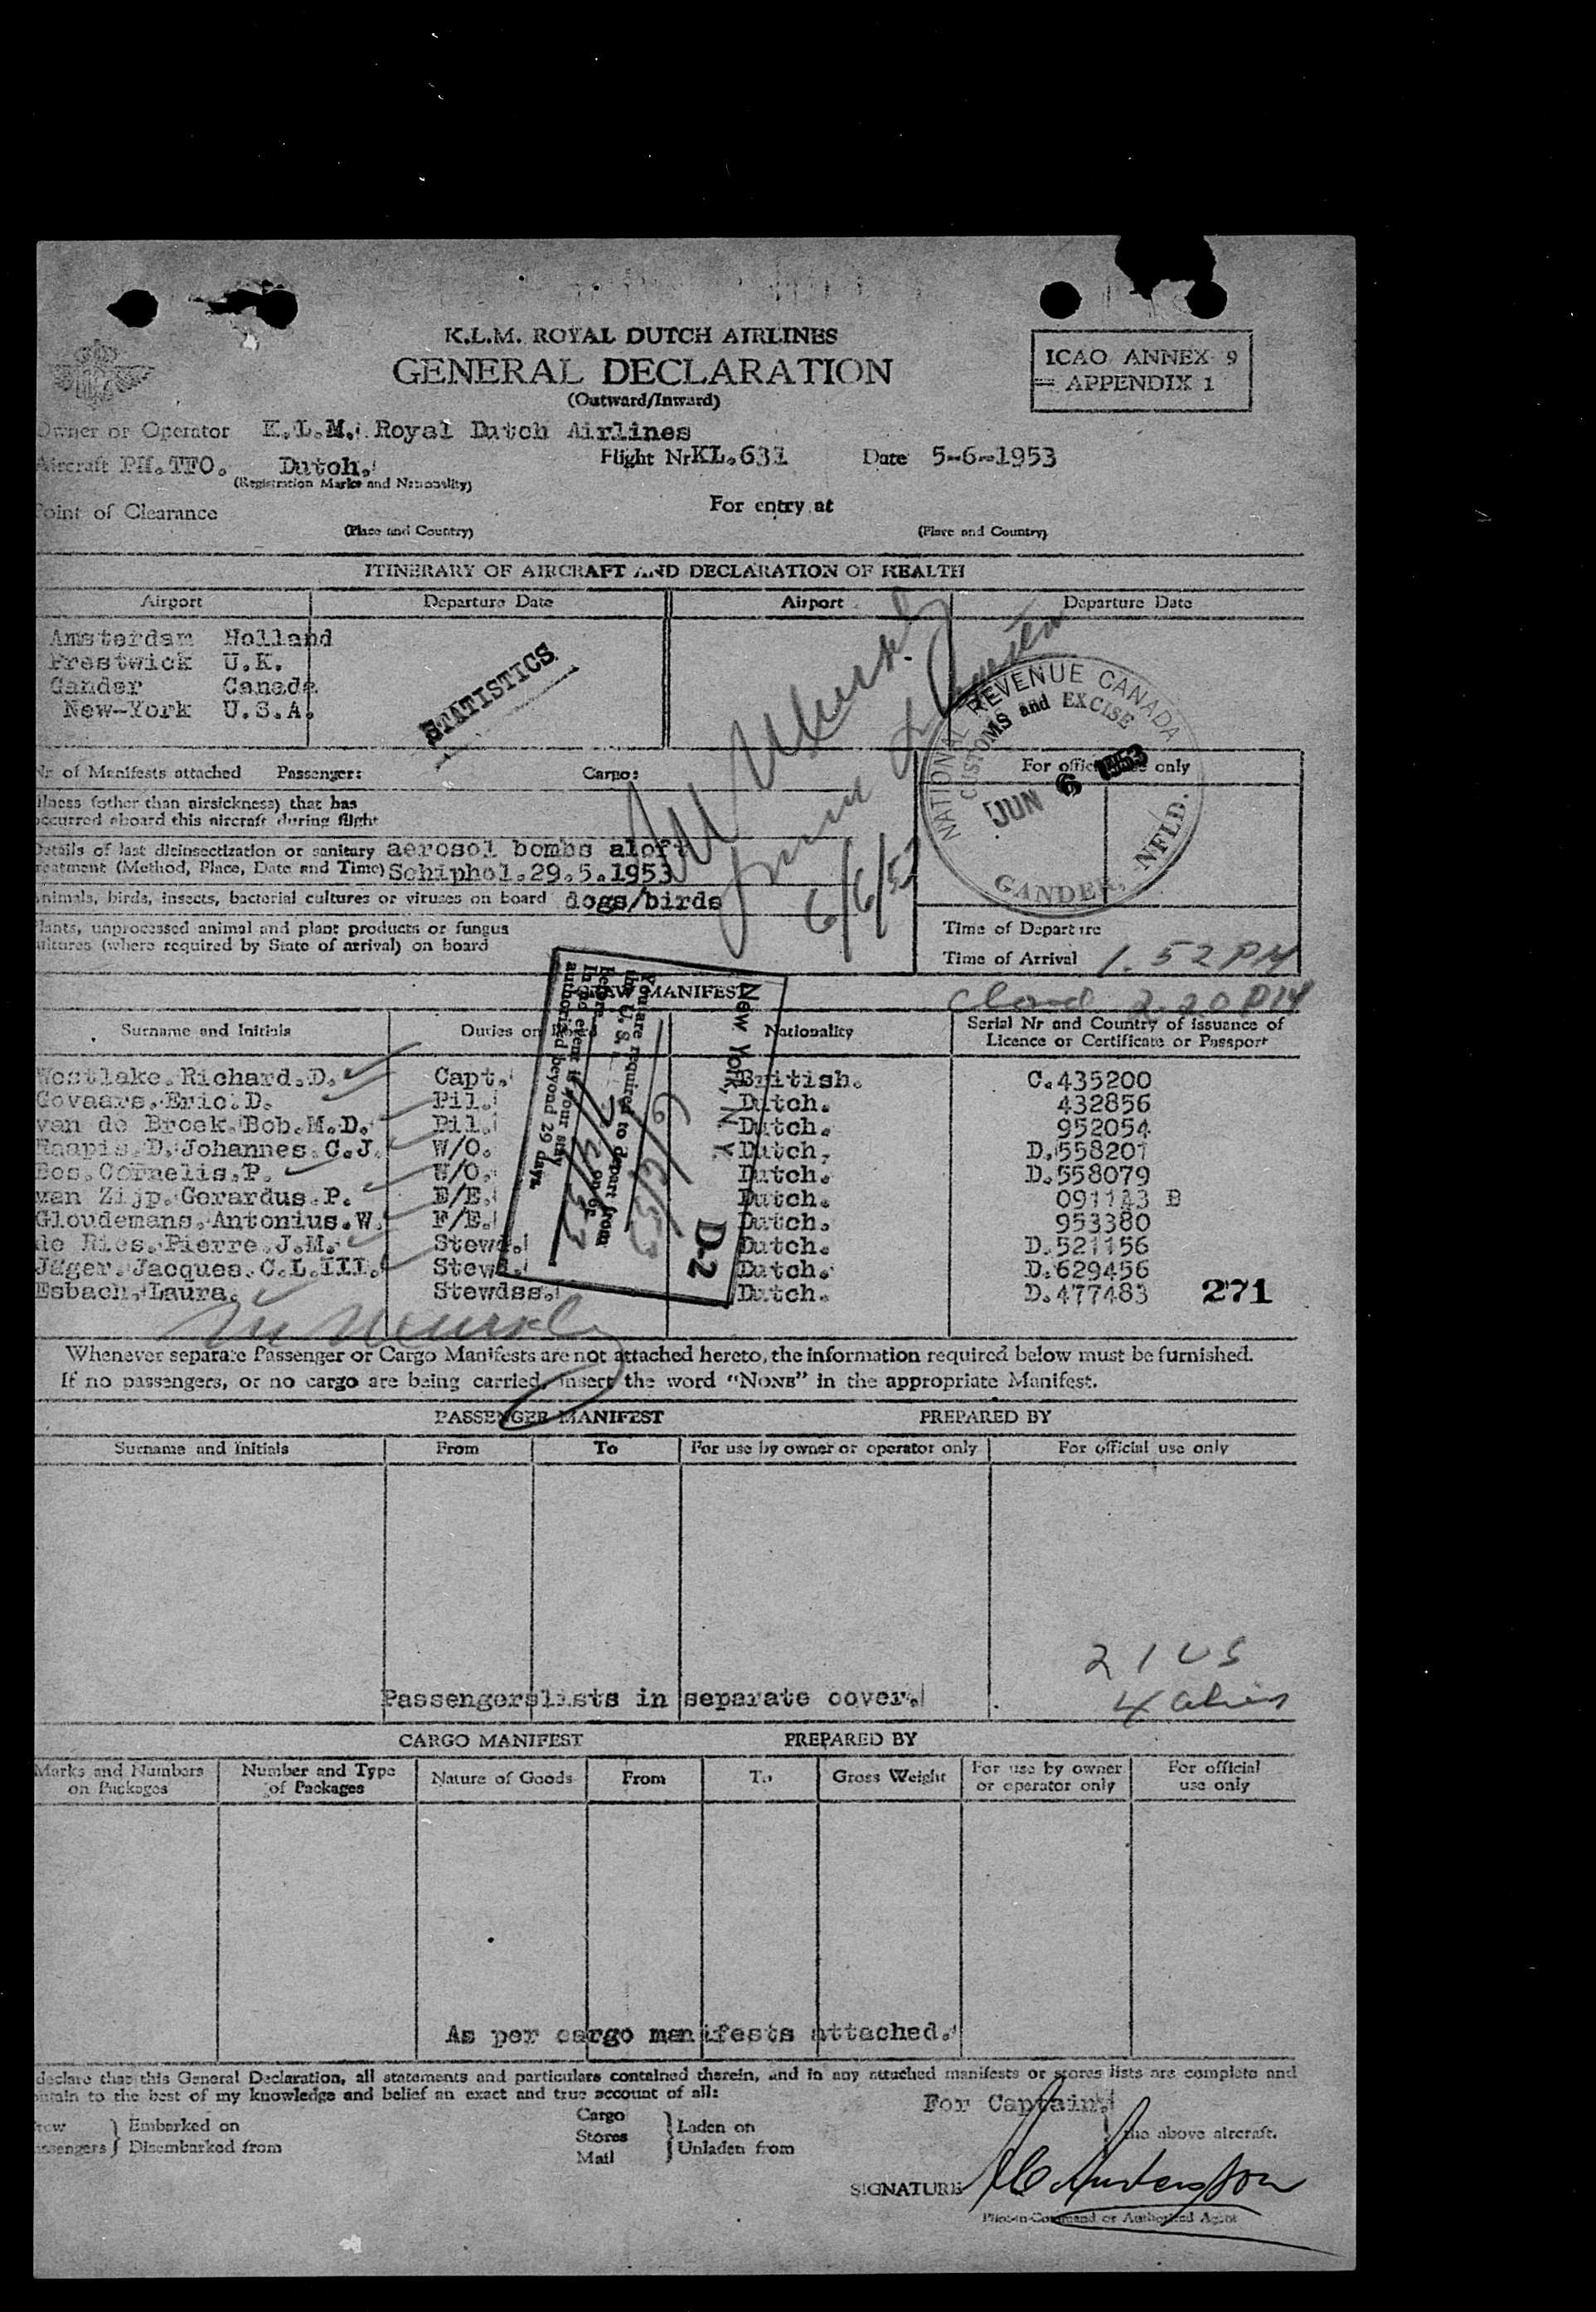 K.L.M. ROYAL DUTCH AIRLINES
GENERAL DECLARATION
(Outward/Inward)
ICAO ANNEX 9
APPENDIX 1
Owner or Operator K.L.M. Royal Dutch Airlines
Aircraft PH.TFO. Dutch. Flight Nr KL.631 Date 5-6-1953
(Registration Marks and Nationality)
Point of Clearance For entry at
(Place and Country) (Place and Country)
ITINERARY OF AIRCRAFT AND DECLARATION OF HEALTH
Airport Departure Date Airport Departure Date
Amsterdam Holland
Prestwick U.K.
Gander Canada
New-York U.S.A.
STATISTICS
NATIONAL REVENUE CANADA
CUSTOMS and EXCISE
JUN 6 1953
GANDER, NFLD.
Nr. of Manifests attached Passenger: Cargo:
For official use only
illness (other than airsickness) that has
occurred aboard this aircraft during flight
Details of last disinsectization or sanitary aerosol bombs aloft
treatment (Method, Place, Date and Time) Schiphol.29.5.1953
Animals, birds, insects, bacterial cultures or viruses on board dogs/birds
6/6/53
Plants, unprocessed animal and plant products or fungus
cultures (where required by State of arrival) on board
Time of Departure
Time of Arrival 1.52 PM
2.20 PM
CREW MANIFEST
Surname and Initials Duties on Board Nationality Serial Nr and Country of issuance of
Licence or Certificate or Passport
Westlake.Richard.D. Capt. British. C.435200
Govaars.Eric.D. Pil. Dutch. 432856
van de Broek.Bob.M.D. Pil. Dutch. 952054
Haapis.D.Johannes.C.J. W/O. Dutch. D.558201
Bos.Cornelis.P. W/O. Dutch. D.558079
van Zijp.Gerardus.P. E/E. Dutch. 091143 B
Gloudemans.Antonius.W. F/E. Dutch. 953380
de Ries.Pierre.J.M. Stewd. Dutch. D.521156
Jäger.Jacques.C.L.III. Stewd. Dutch. D.629456
Esbach.Laura. Stewdss. Dutch. D.477483
271
New York, N. Y.
D-2
6/6/53
You are required to depart from
the U. S. on or
before
in no event is your stay
authorized beyond 29 days.
Whenever separate Passenger or Cargo Manifests are not attached hereto, the information required below must be furnished.
If no passengers, or no cargo are being carried, insert the word "NONE" in the appropriate Manifest.
PASSENGER MANIFEST PREPARED BY
Surname and Initials From To For use by owner or operator only For official use only
21 US
Passengerslists in separate cover. 4 alien
CARGO MANIFEST PREPARED BY
Marks and Numbers on Packages Number and Type of Packages Nature of Goods From To Gross Weight For use by owner or operator only For official use only
As per cargo manifests attached.
declare that this General Declaration, all statements and particulars contained therein, and in any attached manifests or stores lists are complete and
contain to the best of my knowledge and belief an exact and true account of all:
Crew Embarked on Cargo Laden on For Captain.
Passengers Disembarked from Stores Unladen from the above aircraft.
Mail
SIGNATURE
Pilot-in-Command or Authorized Agent